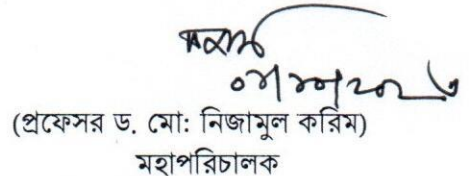 (প্রফেসর ড. মো: নিজামুল করিম)
মহাপরিচালক